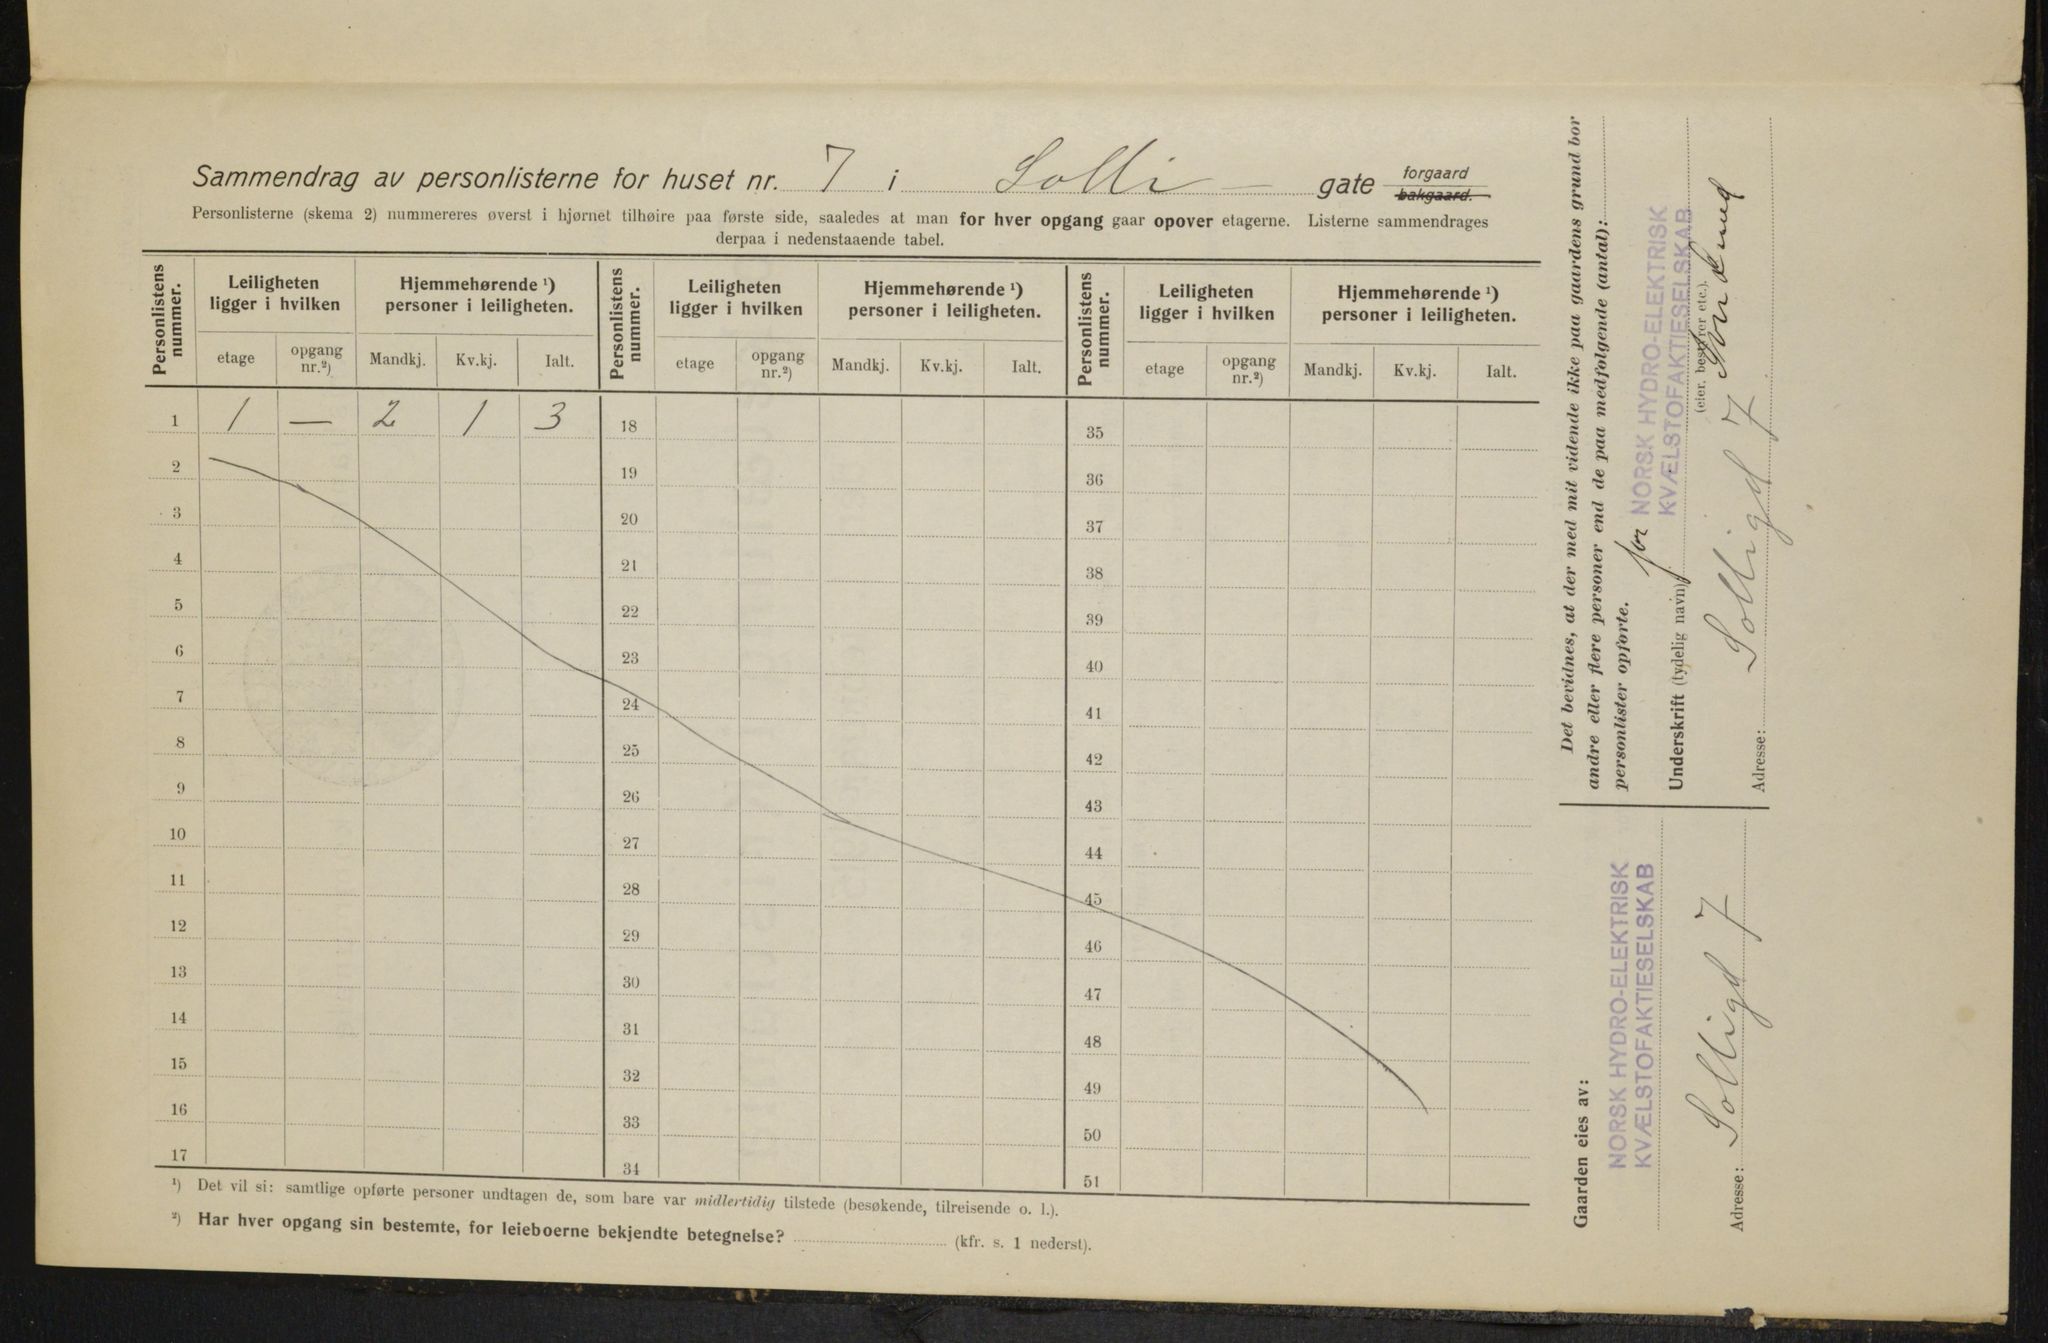 Sammendrag av personlisterne for huset nr. 7 i Solli - gate forgaard
bakgaard.
Personlisterne (skema 2) nummereres øverst i hjørnet tilhøire paa første side, saaledes at man for hver opgang gaar opover etagerne. Listerne sammendrages
derpaa i nedenstaaende tabel.
Personlistens nummer.
Leiligheten ligger i hvilken
Hjemmehørende ¹) personer i leiligheten.
Personlistens nummer.
Leiligheten ligger i hvilken
Hjemmehørende ¹) personer i leiligheten.
Personlistens nummer.
Leiligheten ligger i hvilken
Hjemmehørende ¹) personer i leiligheten.
etage opgang nr.²) Mandkj. Kv.kj. Ialt. etage opgang nr.²) Mandkj. Kv.kj. Ialt. etage opgang nr.²) Mandkj. Kv.kj. Ialt.
1 1 — 2 1 3 18 35
2 19 36
3 20 37
4 21 38
5 22 39
6 23 40
7 24 41
8 25 42
9 26 43
10 27 44
11 28 45
12 29 46
13 30 47
14 31 48
15 32 49
16 33 50
17 34 51
¹) Det vil si: samtlige opførte personer undtagen de, som bare var midlertidig tilstede (besøkende, tilreisende o. l.).
²) Har hver opgang sin bestemte, for leieboerne bekjendte betegnelse? (kfr. s. 1 nederst).
Det bevidnes, at der med mit vidende ikke paa gaardens grund bor
andre eller flere personer end de paa medfølgende (antal):
personlister opførte.
for NORSK HYDRO-ELEKTRISK
KVÆLSTOFAKTIESELSKAB
Underskrift (tydelig navn)
(eier, bestyrer etc.).
Adresse: Solligd 7
Gaarden eies av:
NORSK HYDRO-ELEKTRISK
KVÆLSTOFAKTIESELSKAB
Adresse: Solligd 7